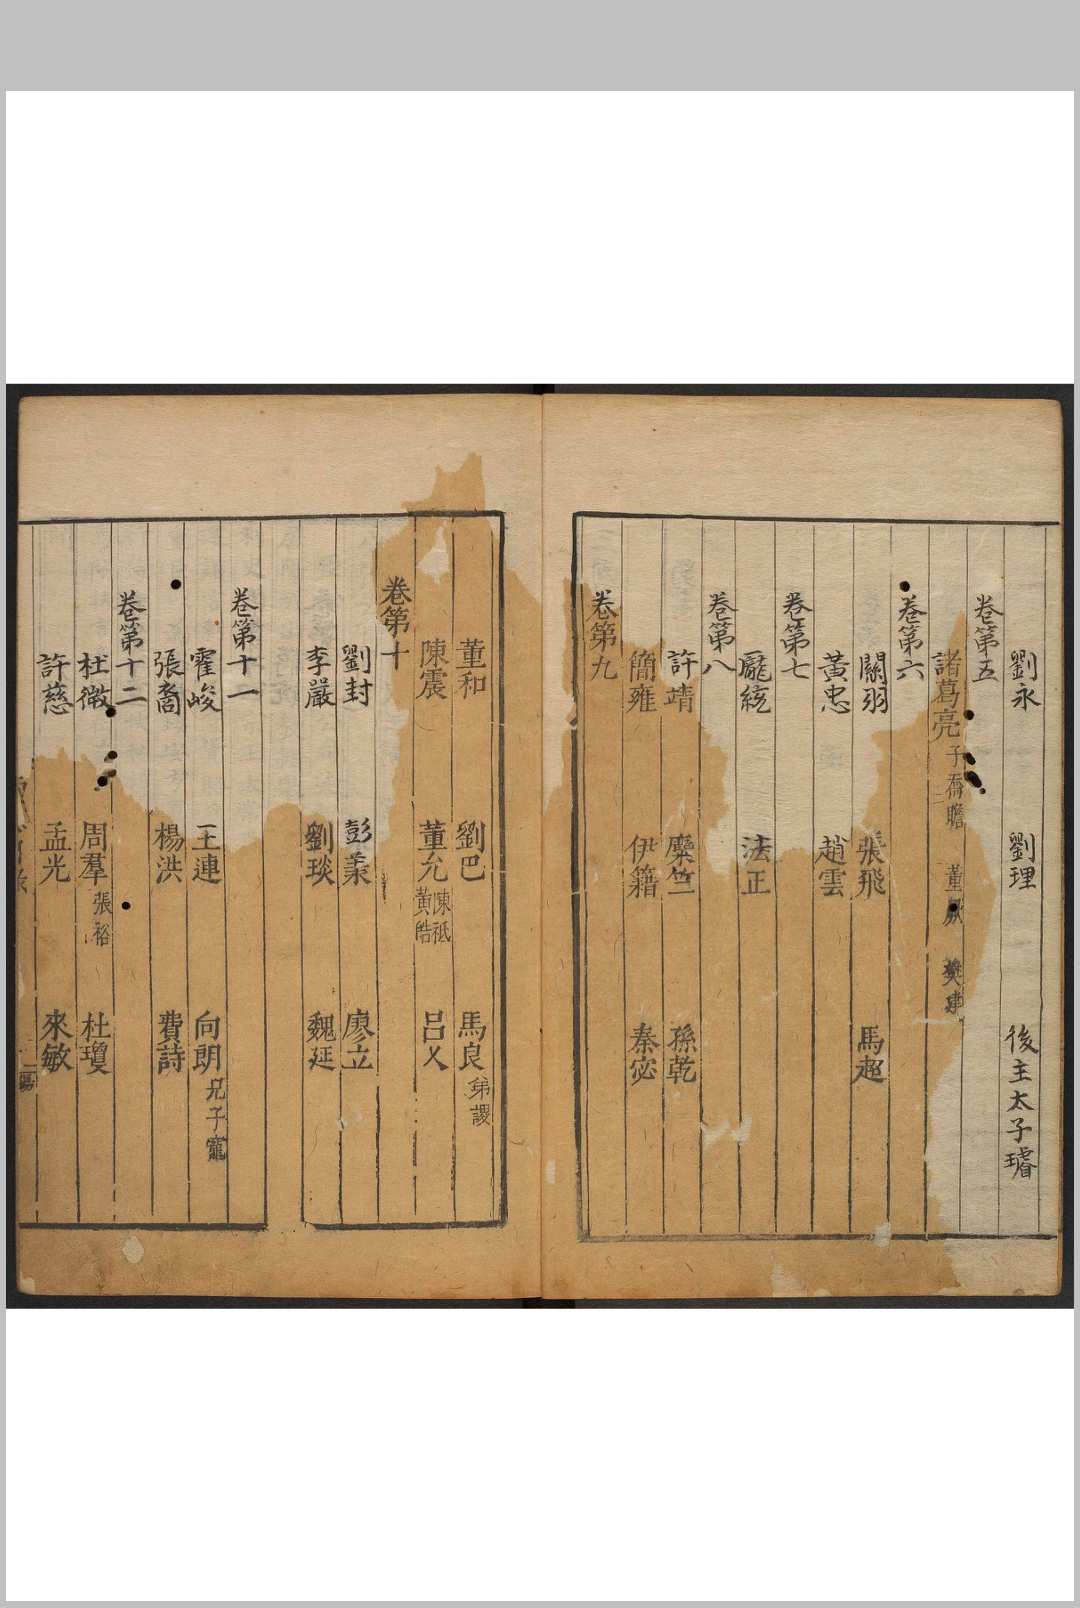 劉永 劉理 後主太子璿
卷第五
諸葛亮 子喬 瞻 董厥 樊建
卷第六
關羽 張飛 馬超
黃忠 趙雲
卷第七
龐統 法正
卷第八
許靖 麋竺 孫乾
簡雍 伊籍 秦宓
卷第九
董和 劉巴 馬良 弟謖
陳震 董允 陳祗 黃皓 呂乂
卷第十
劉封 彭羕 廖立
李嚴 劉琰 魏延
卷第十一
霍峻 王連 向朗 兄子寵
張裔 楊洪 費詩
卷第十二
杜微 周羣 張裕 杜瓊
許慈 孟光 來敏